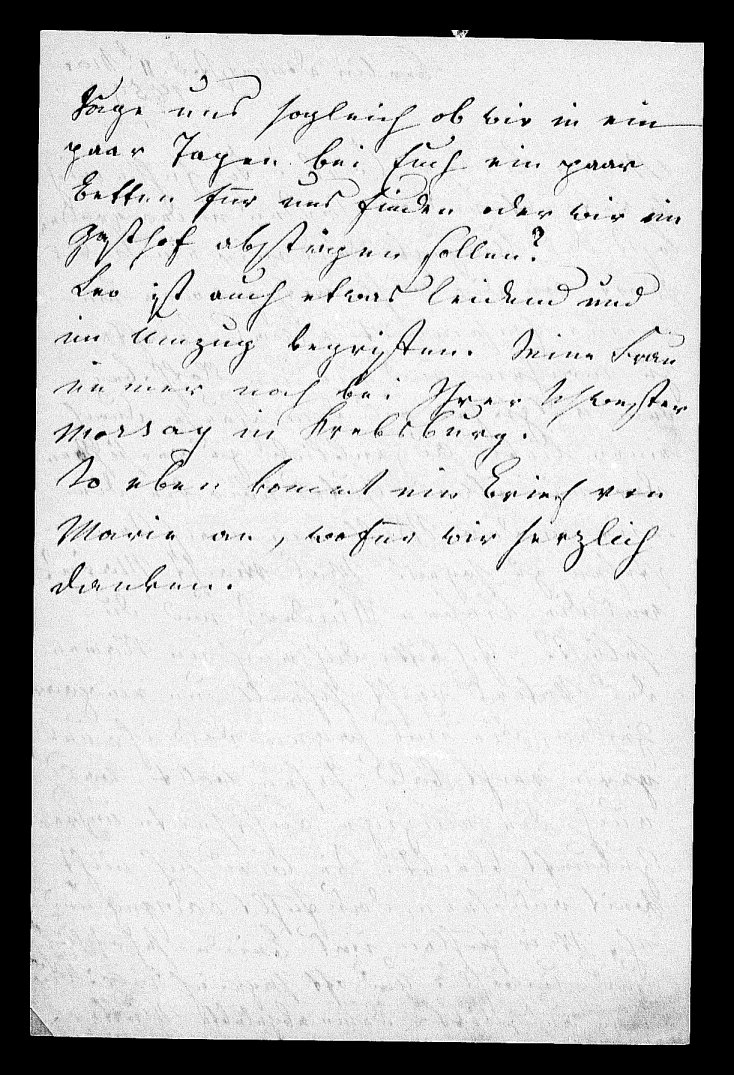 Sage uns sogleich ob wir in ein
paar Tagen bei Euch ein paar
Betten für uns finden oder wir im
Gasthof absteigen sollen?
Leo ist auch etwas leidend und
im Umzug begriffen. Seine Frau
immer noch bei Ihrer Schwester
Morsay in Krebsburg.
So eben kommt ein Brief von
Marie an, wofür wir herzlich
danken.